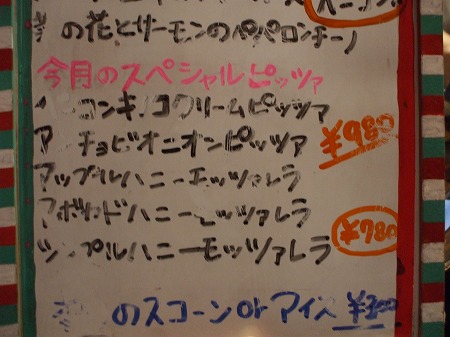 の花とサーモンのペペロンチーノ
今月のスペシャルピッツァ
コンキノコクリームピッツァ
アチョビオニオンピッツァ ¥980
アップルハニーモッツァレラ
アボカドハニーモッツァレラ
シンプルハニーモッツァレラ ¥780
のスコーン or アイス ¥300